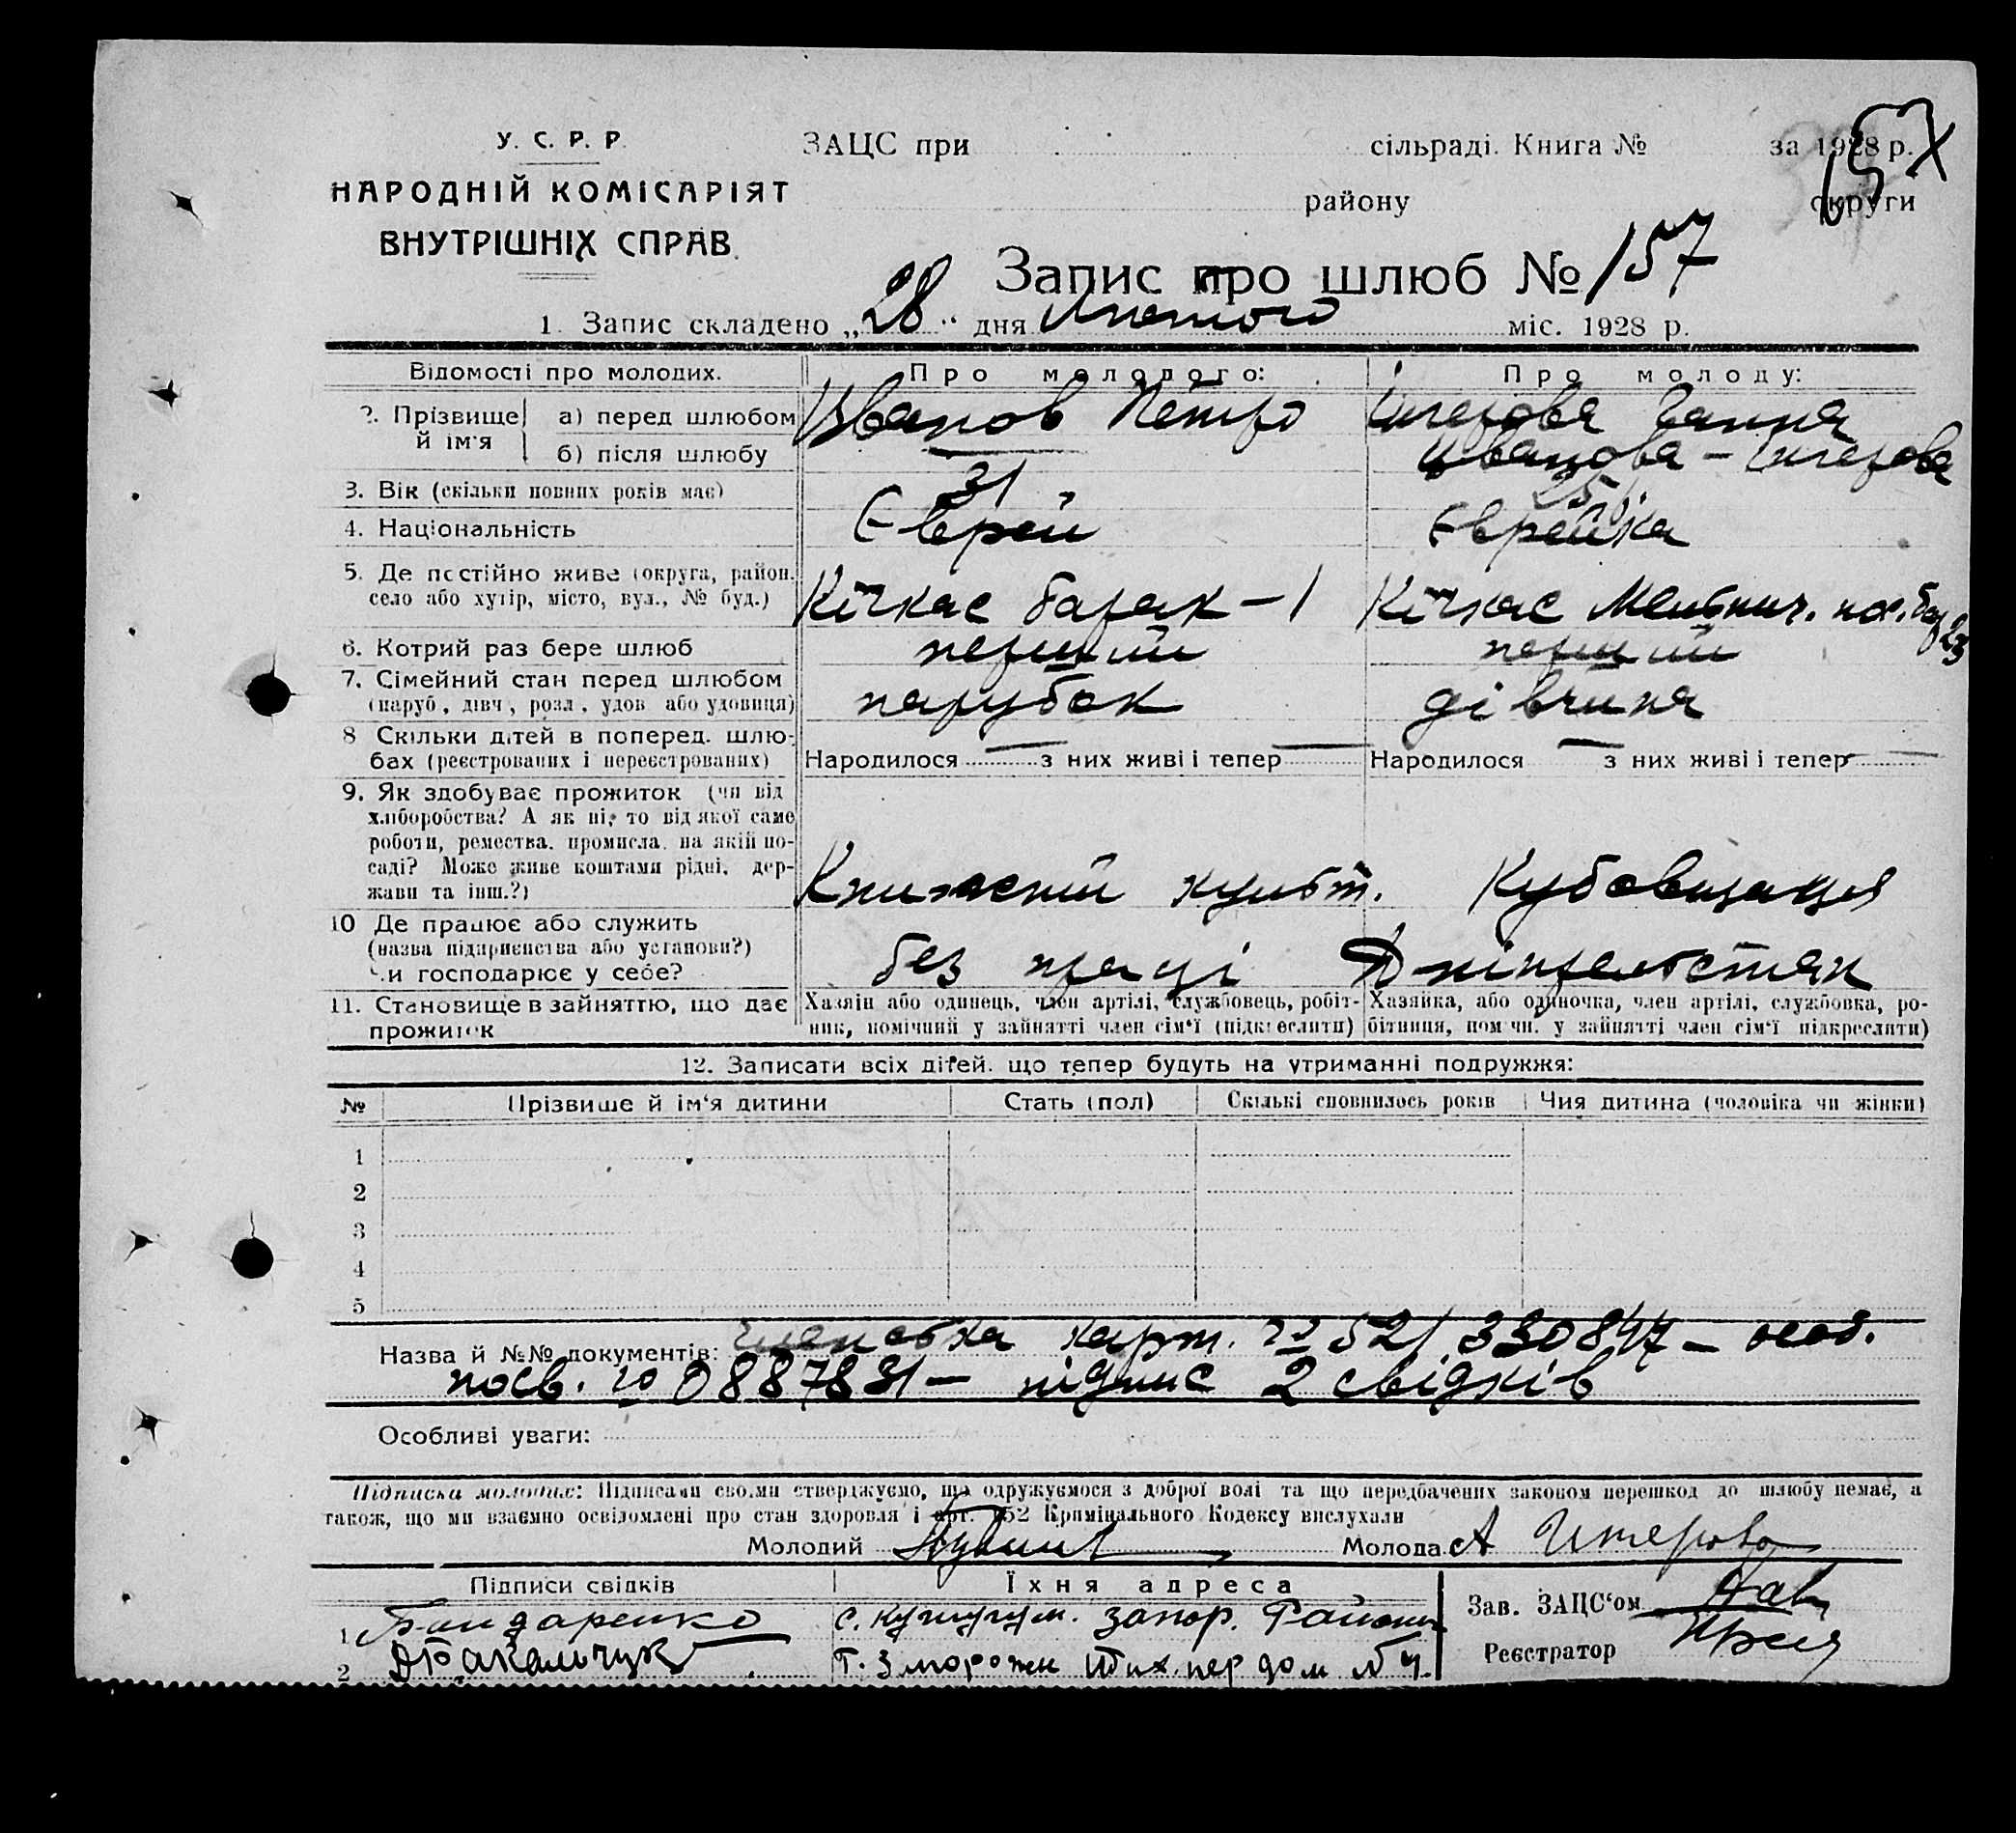 157
У. С. Р. Р.
НАРОДНІЙ КОМІСАРІЯТ
ВНУТРІШНІХ СПРАВ.
ЗАЦС при сільраді. Книга № за 1928 р.
району округи
Запис про шлюб № 157
1. Запис складено „28“ дня Лютого міс. 1928 р.
Відомості про молодих. Про молодого: Про молоду:
2. Прізвище й ім'я а) перед шлюбом Иванов Петро Ганна
б) після шлюбу
3. Вік (скільки повних років має) 31 25
4. Національність Єврей Єврейка
5. Де постійно живе (округа, район, село або хутір, місто, вул., № буд.) Кічкас барак – 1 Кічкас
6. Котрий раз бере шлюб перший перший
7. Сімейний стан перед шлюбом (паруб., дівч., розл., удов. або удовиця) парубок дівчина
8 Скільки дітей в поперед. шлюбах (реєстрованих і нереєстрованих) Народилося — з них живі і тепер — Народилося — з них живі і тепер —
9. Як здобуває прожиток (чи від хліборобства? А як ні, то від якої саме роботи, ремества, промисла, на якій посаді? Може живе коштами рідні, держави та інш.?)
10 Де працює або служить (назва підприємства або установи?) Чи господарює у себе? без праці
11. Становище в зайняттю, що дає прожиток Хазяїн або одинець, член артілі, службовець, робітник, помічний у зайнятті член сім'ї (підкреслити) Хазяйка, або одиночка, член артілі, службовка, робітниця, помічн. у зайнятті член сім'ї підкреслити)
12. Записати всіх дітей, що тепер будуть на утриманні подружжя:
№ Прізвище й ім'я дитини Стать (пол) Скількі сповнилось років Чия дитина (чоловіка чи жінки)
1
2
3
4
5
Назва й №№ документів: карт. № 521 330847 – особ.
посв. № 0887831 – підпис 2 свідків
Особливі уваги:
Підписка молодих: Підписами своїми стверджуємо, що одружуємося з доброї волі та що передбачених законом перешкод до шлюбу немає, а
також, що ми взаємно освідомлені про стан здоровля і арт. 152 Кримінального Кодексу вислухали
Молодий Молода А Итерова
Підписи свідків Їхня адреса Зав. ЗАЦС'ом
1 Бондаренко с. Кушугум. запор. Району
2 Г. Запорожжя пер дом № 4. Реєстратор